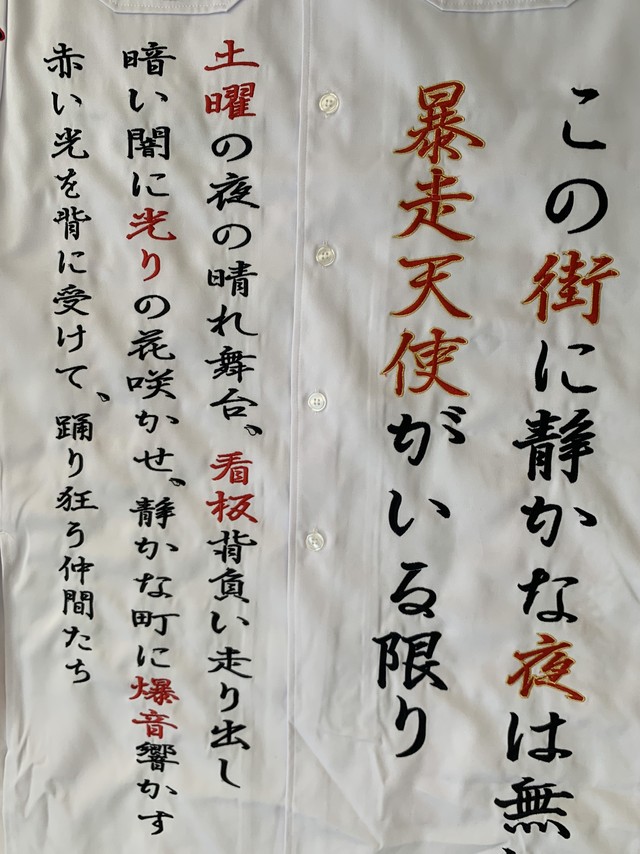 この街に静かな夜は無
暴走天使がいる限り
土曜の夜の晴れ舞台、看板背負い走り出し
暗い闇に光りの花咲かせ、静かな町に爆音響かす
赤い光を背に受けて、踊り狂う仲間たち